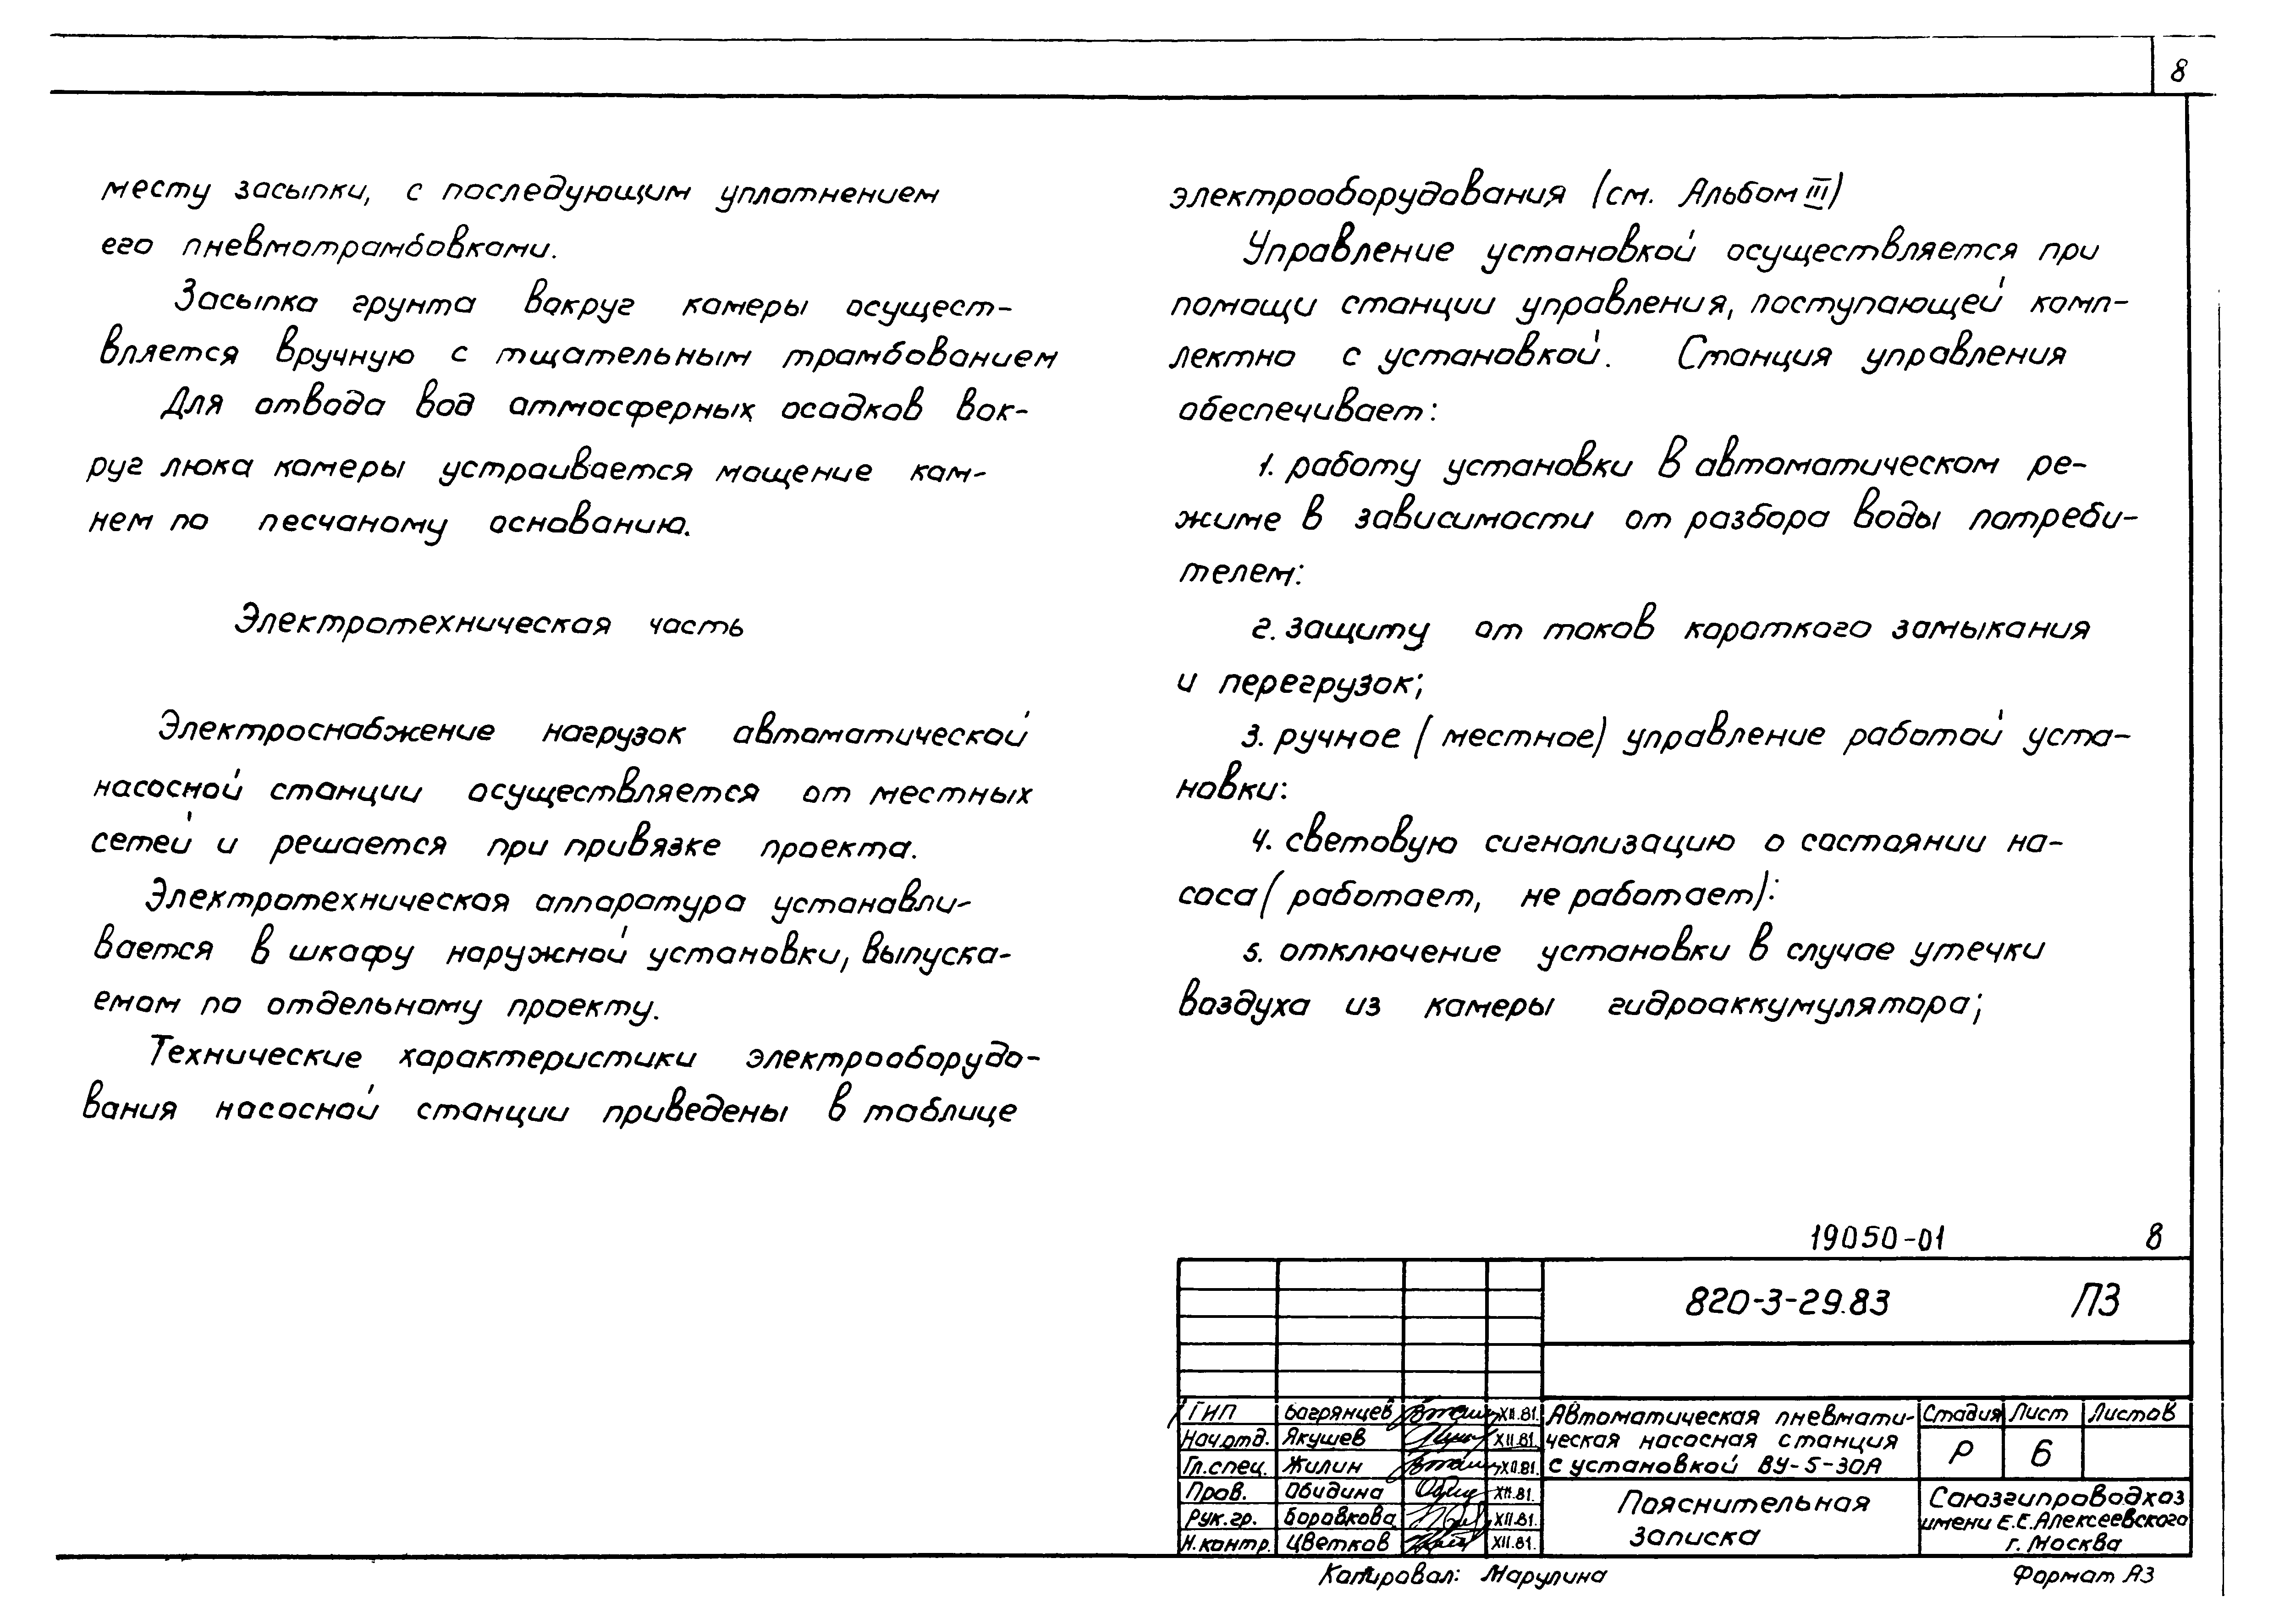 8
месту засыпки, с последующим уплотнением
его пневмотрамбовками.
Засыпка грунта вокруг камеры осущест-
вляется вручную с тщательным трамбованием
Для отвода вод атмосферных осадков вок-
руг люка камеры устраивается мощение кам-
нем по песчаному основанию.
Электротехническая часть
Электроснабжение нагрузок автоматической
насосной станции осуществляется от местных
сетей и решается при привязке проекта.
Электротехническая аппаратура устанавли-
вается в шкафу наружной установки, выпуска-
емом по отдельному проекту.
Технические характеристики электрооборудо-
вания насосной станции приведены в таблице
электрооборудования (см. Альбом III)
Управление установкой осуществляется при
помощи станции управления, поступающей комп-
лектно с установкой. Станция управления
обеспечивает:
1. работу установки в автоматическом ре-
жиме в зависимости от разбора воды потреби-
телем:
2. защиту от токов короткого замыкания
и перегрузок;
3. ручное (местное) управление работой уста-
новки:
4. световую сигнализацию о состоянии на-
соса (работает, не работает):
5. отключение установки в случае утечки
воздуха из камеры гидроаккумулятора;
19050-01 8
820-3-29.83 ПЗ
ГИП Багрянцев XII.81.
Нач.отд. Якушев XII.81.
Гл.спец. Жилин XII.81.
Пров. Обидина XII.81.
Рук.гр. Боровкова XII.81.
Н.контр. Цветков XII.81.
Автоматическая пневмати-
ческая насосная станция
с установкой ВУ-5-30А
Стадия Лист Листов
Р 6
Пояснительная
записка
Союзгипроводхоз
имени Е.Е.Алексеевского
г. Москва
Копировал: Марулина Формат А3